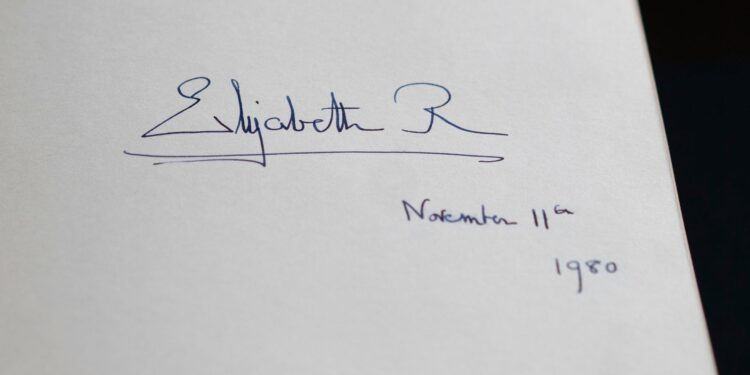 Elizabeth R
November 11th
1980